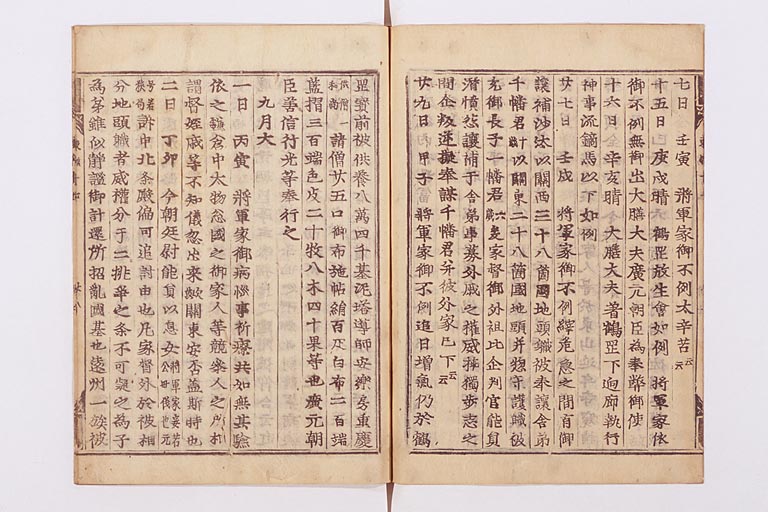 七日　壬寅　將軍家御不例太辛苦云云
十五日　庚戌晴　鶴罡放生會如例將軍家依
御不例無御出大膳大夫廣元朝臣為奉幣御使
十六日　辛亥晴　大膳大夫著鶴罡下廻廊執行
神事流鏑馬以下如例
廿七日　壬戌　將軍家御不例縡危急之間有御
讓補沙汰以關西三十八箇國地頭職被奉讓舍弟
千幡君以關東二十八箇國地頭并惣守護職被
充御長子一幡君六家督御外祖比企判官能員
潛憤怨讓補于舍弟事募外戚之權威挿獨步志之
間企叛逆擬奉謀千幡君并彼外家已下云云
廿九日　甲子　將軍家御不例追日增氣仍於鶴
罡寳前被供養八萬四千基泥塔導師安樂房重慶
供僧一和尚請僧廿五口御布施帖絹百疋白布二百端
藍摺三百端色皮二十枚八木四十果等也廣元朝
臣善信行光等奉行之
九月大
一日　丙寅　將軍家御病惱事祈療共如無其驗
依之鎌倉中太物忩國之御家人等競參人之所相
謂督姪戚等不知儀忽出來歟關東安否盖斯時也
二日　丁卯　今朝廷尉能員以息女將軍家妾若公母儀也元
号若狹局訴申北条殿偏可追討由也凡家督外於被相
分地頭職者威權分于二挑爭之条不可疑之為子
為弟雖似靜謐御計還所招亂國基也遠州一族被